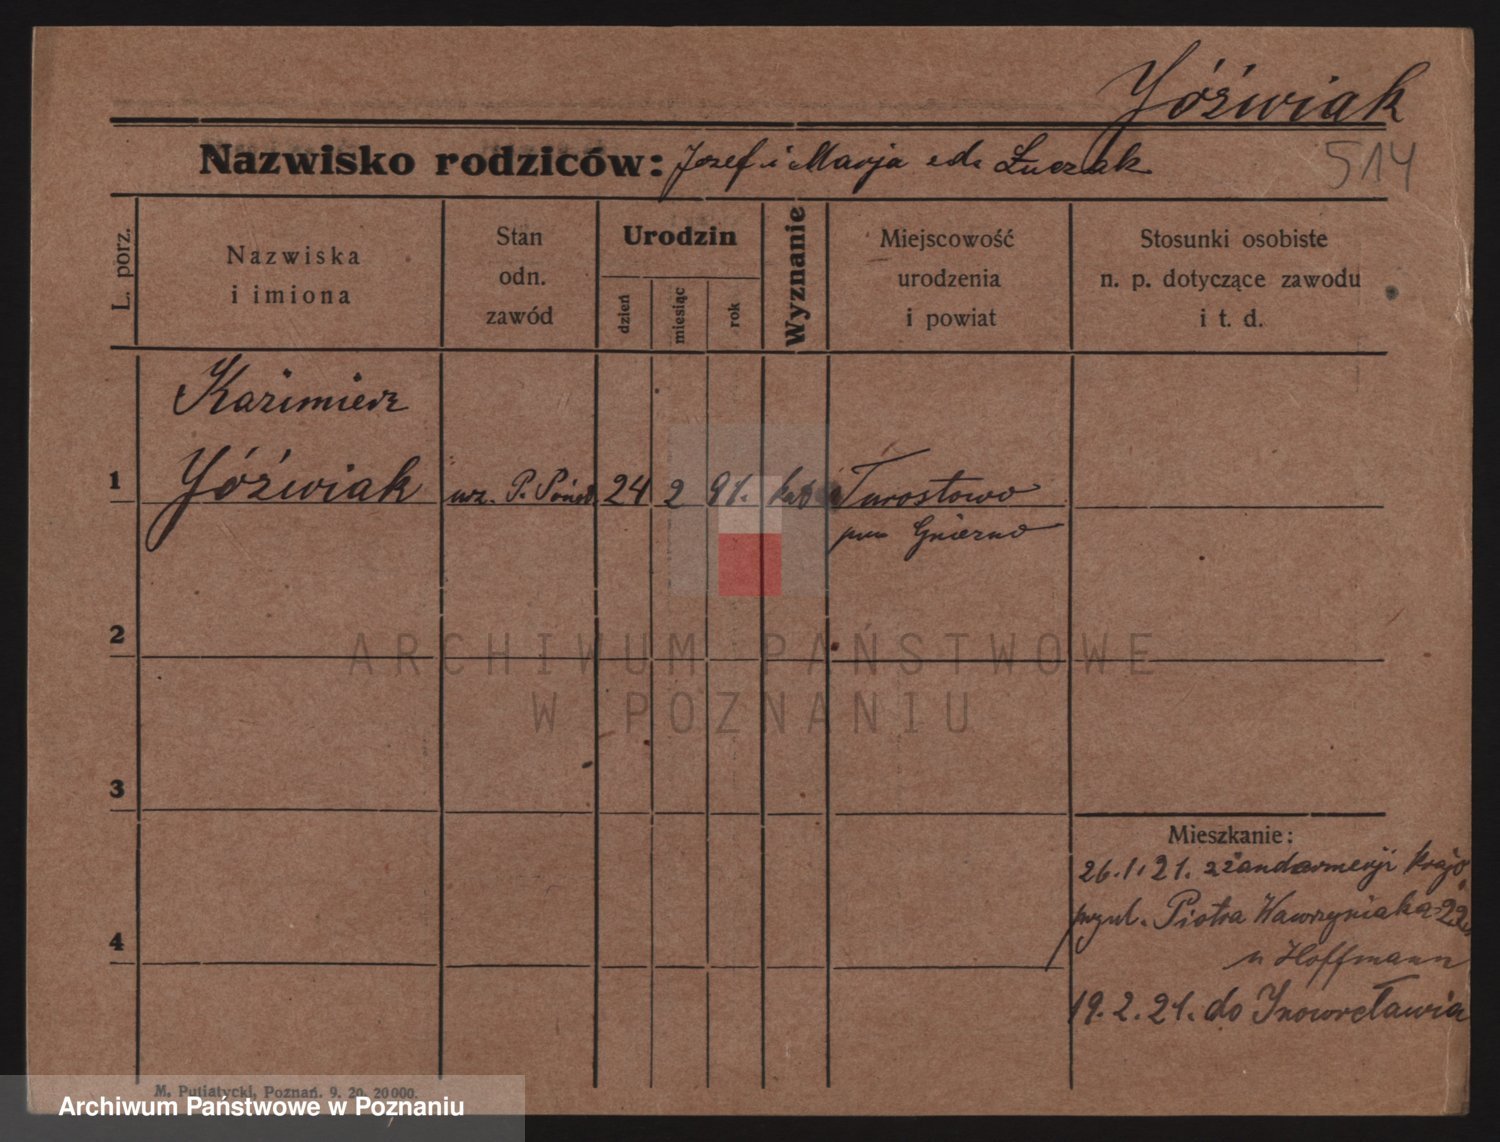 Jóźwiak
Nazwisko rodziców: Jozef i Marja Łuczak
514
L. porz.
Nazwiska
i imiona
Stan
odn.
zawód
Urodzin
dzień
miesiąc
rok
Wyznanie
Miejscowość
urodzenia
i powiat
Stosunki osobiste
n. p. dotyczące zawodu
i t. d.
Kazimierz
1 Jóźwiak urz. P. 24 2 91. kat Turostowo
pow Gniezno
2
ARCHIWUM PAŃSTWOWE
W POZNANIU
3
Mieszkanie:
26.1.21. z żandarmerji krajo
przy ul. Piotra Wawrzyniaka 22
4
u Hoffmann
19.2.21. do Inowrocławia
M. Putiatycki, Poznań. 9. 20. 20000.
Archiwum Państwowe w Poznaniu